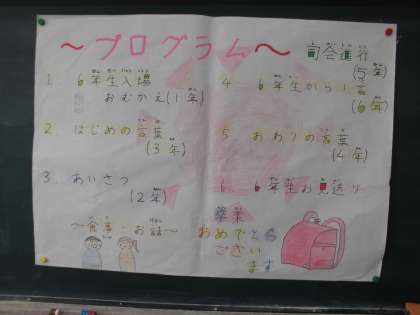 ～プログラム～
司会進行
(5年)
1. 6年生入場
おむかえ(1年)
2. はじめの言葉
(3年)
3. あいさつ
(2年)
～会食・お話～
4. 6年生から1言
(6年)
5. おわりの言葉
(4年)
6年生お見送り
卒業
おめでとう
ござい
ます